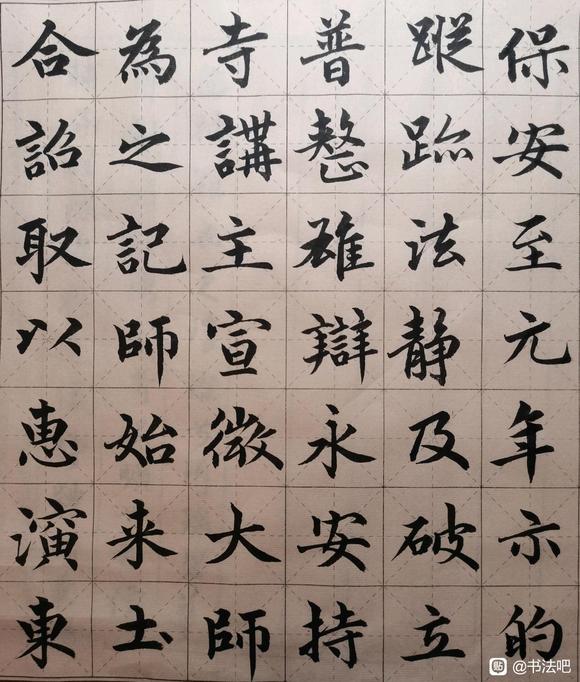 保安至元年示的
蹤跡法静及破立
普雄辯永安持
寺講主宣微大師
為之記師始来土
合詔取以惠演東
@书法吧